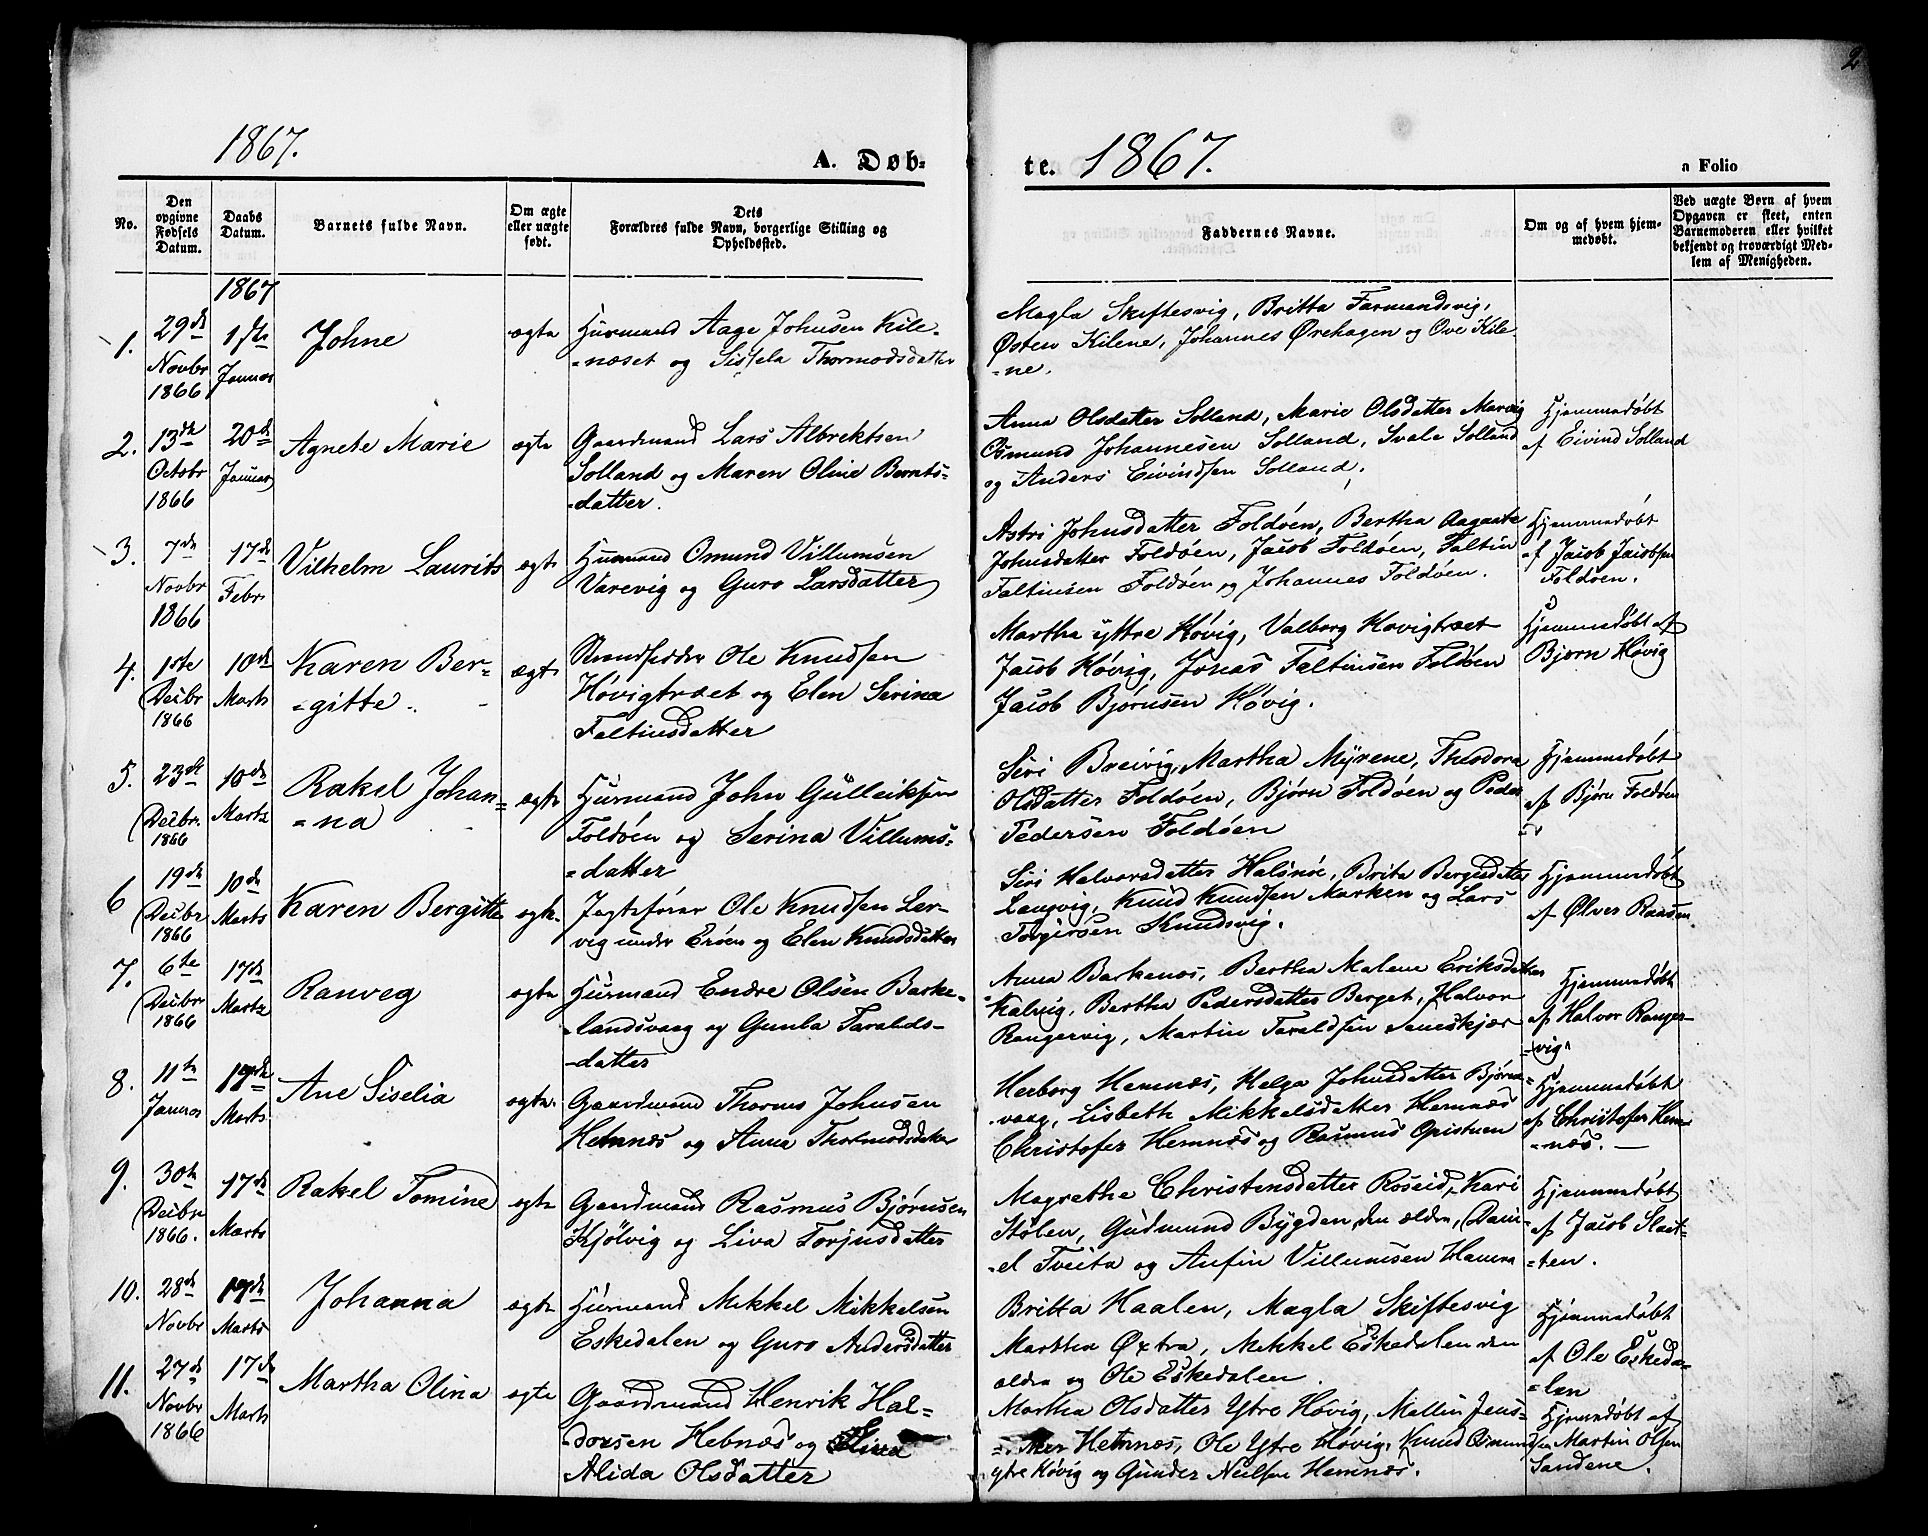 2
1867.
A. Døb-
te. 1867.
a Folio
No.
Den opgivne Fødsels Datum.
Daabs Datum.
Barnets fulde Navn.
Om ægte eller uægte født.
Dets Forældres fulde Navn, borgerlige Stilling og Opholdssted.
Faddernes Navne.
Om og af hvem hjemmedøbt.
Ved uægte Børn af hvem Opgaven er skeet, enten Barnemoderen eller hvilket bekjendt og troværdigt Medlem af Menigheden.
1867
1.
29de
Novbr
1866
1ste
Januar
Johne
ægte
Huusmand Aage Johnsen Kile-
=næset og Sissela Thormodsdatter
Magla Skiftesvig, Britta Farmandsvig,
Østen Kilene, Johannes Ørehagen og Ove Kile
=ne.
2.
13de
Octobr
1866
20de
Januar
Agnete Marie
ægte
Gaardmand Lars Albrektsen
Solland og Maren Oline Bernts-
=datter.
Anna Olsdatter Solland, Marie Olsdatter Marvig
Osmund Johannesen Solland, Svale Solland
og Anders Eivindsen Solland,
Hjemmedøbt
af Eivind Solland
3.
7de
Novbr
1866
17de
Febr.
Vilhelm Laurits
ægte
Huusmand Omund Villumsen
Varevig og Guro Larsdatter
Astri Johnsdatter Foldøen, Bertha Aagaate
Johnsdatter Foldøen, Jacob Foldøen, Faltin
Faltinsen Foldøen og Johannes Foldøen.
Hjemmedøbt
af Jacob Jacobsen
Foldøen.
4.
1ste
Decbr
1866
10de
Marts
Karen Ber-
=gitte.
ægte
Strandsidder Ole Knudsen
Høvigtræet og Elen Serina
Faltinsdatter
Martha yttre Høvig, Valborg Høvigtræet
Jacob Høvig, Jonas Faltinsen Foldøen
Jacob Bjørnsen Høvig.
Hjemmedøbt af
Bjørn Høvig
5.
23de
Decbr.
1866
10de
Marts
Rakel Johan-
=na
ægte
Huusmand John Gulleiksen
Foldøen og Serina Villums-
=datter
Siri Breivig, Martha Myrene, Theodora
Olsdatter Foldøen, Bjørn Foldøen og Peder
Pedersen Foldøen
Hjemmedøbt
af Bjørn Foldøen
6
19de
Decbr
1866
10de
Marts
Karen Bergitte
ægte.
Jagtefører Ole Knudsen Ler-
vig under Erøen og Elen Knudsdatter
Siri Halvorsdatter Halsnøe, Brita Bergesdatter
Langvig, Knud Knudsen Marken og Lars
Torgersen Knudsvig.
Hjemmedøbt
af Ølver Ramsen
7.
6te
Decbr
1866
17de
Marts
Ranveg
ægte
Huusmand Endre Olsen Barke-
=landsvaag og Gunla Taralds-
=datter
Anna Barkenæs, Bertha Malene Eriksdatter
Kalvig, Bertha Pedersdatter Berget, Halvor
Rangervig, Martin Taraldsen Sandskjær
Hjemmedøbt
af Halvor Ranger-
=vig
8.
11te
Januar
17de
Marts
Ane Siselia
ægte.
Gaardmand Thormo Johnsen
Hebnnæs og Anna Thormodsdatter
Herborg Hemnæs, Helga Johnsdatter Bjørne-
vaag, Lisbeth Mikkelsdatter Hemnæs
Christofer Hemnæs og Rasmus Opistuen
Hjemmedøbt
af Christofer Hem-
=næs.
9.
30te
Decbr
1866.
17de
Marts
Rakel Tomine
ægte
Gaardmand Rasmus Bjørnsen
Kjølvig og Liva Torjusdatter
Magrethe Christensdatter Roseid, Kari
Stølen, Gudmund Bygden den ældre, Dani-
=el Tveita og Anfin Villumsen Hamra
Hjemmedøbt
af Jacob Slaat-
=ten.
10.
28de
Novbr
17de
Marts
Johanna
ægte
Huusmand Mikkel Mikkelsen
Eskedalen og Guro Andersdatter
Britta Haalen, Magla Skiftesvig
Martha Øxtra, Mikkel Eskedalen den
ældre og Ole Eskedalen.
Hjemmedøbt
af Ole Eskeda-
=len
11.
27de
Novbr
1866
17de
Marts
Martha Olina
ægte
Gaardmand Henrik Hal-
dorsen Hebnæs og
Alida Olsdatter
Martha Olsdatter Ytre Høvig, Mallin Jens-
Hemnæs, Ole Ytre Høvig, Knud Osmun
ytre Høvig og Gunder Neilsen Hemnæs.
Hjemdøbt af
Martin Olsen
Sandene.